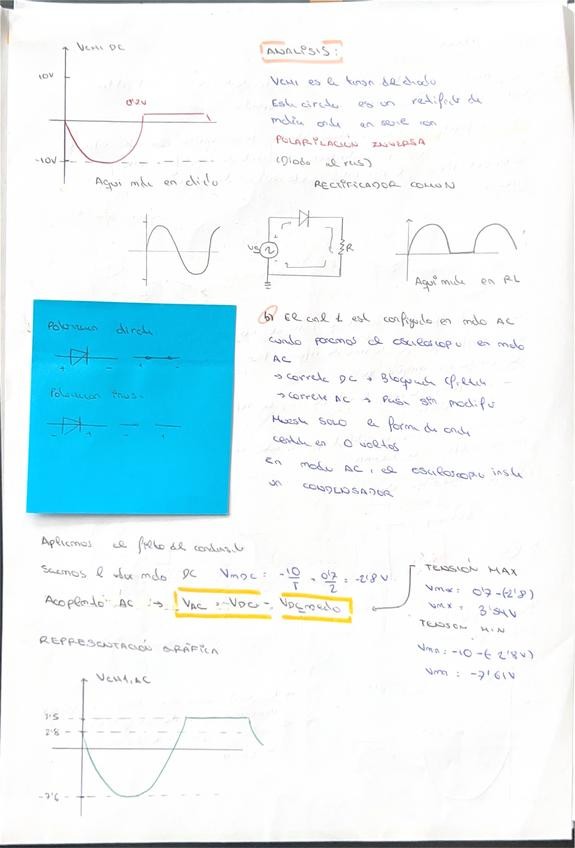 VCH1 DC
ANALISIS:
10V
0'7V
VCH1 es la tension del diodo
Este circuito es un rectificador de
media onda en serie con
POLARIZACIÓN INVERSA
(Diodo al reves)
-10V
Aqui mide en diodo
RECTIFICADOR COMUN
VS
R
Aquí mide en RL
Polarizacion directa
+ -
Polarizacion inversa
- +
b) El canal 1 está configurado en modo AC
cuando ponemos el osciloscopio en modo
AC
→ corriente DC → Bloqueada
→ corriente AC → Pasa sin modificar
Muestra SOLO la forma de onda
centrada en 0 voltos
En modo AC, el osciloscopio inserta
un CONDENSADOR
Aplicamos el filtro del condensador
Sacamos el valor modo DC VmDC = -10/π + 0'7/2 = -2'8 V
Acoplando AC → VAC = VDC - VDCmedio
TENSIÓN MAX
Vmax = 0'7-(-2'8)
Vmax = 3'54V
TENSION MIN
Vmin = -10-(-2'8V)
Vmin = -7'61V
REPRESENTACIÓN GRÁFICA
VCH1,AC
3'5
2'8
-7'6